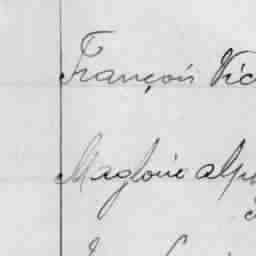 François Vic
Magloire alp